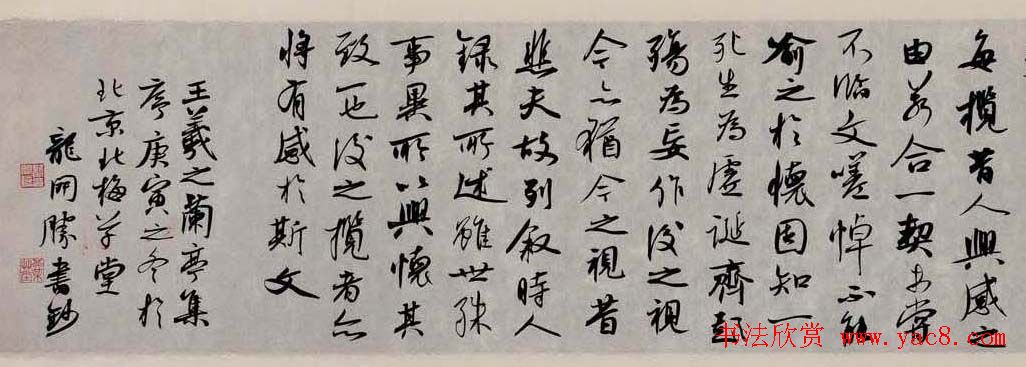 每攬昔人興感之
由若合一契未嘗
不臨文嗟悼不能
喻之於懷固知一
死生為虛誕齊彭
殤為妄作後之視
今亦猶今之視昔
悲夫故列敘時人
錄其所述雖世殊
事異所以興懷其
致一也後之攬者亦
將有感於斯文
王羲之蘭亭集
序庚寅之冬於
北京北梅草堂
龍開勝書鈔
书法欣赏 www.yac8.com